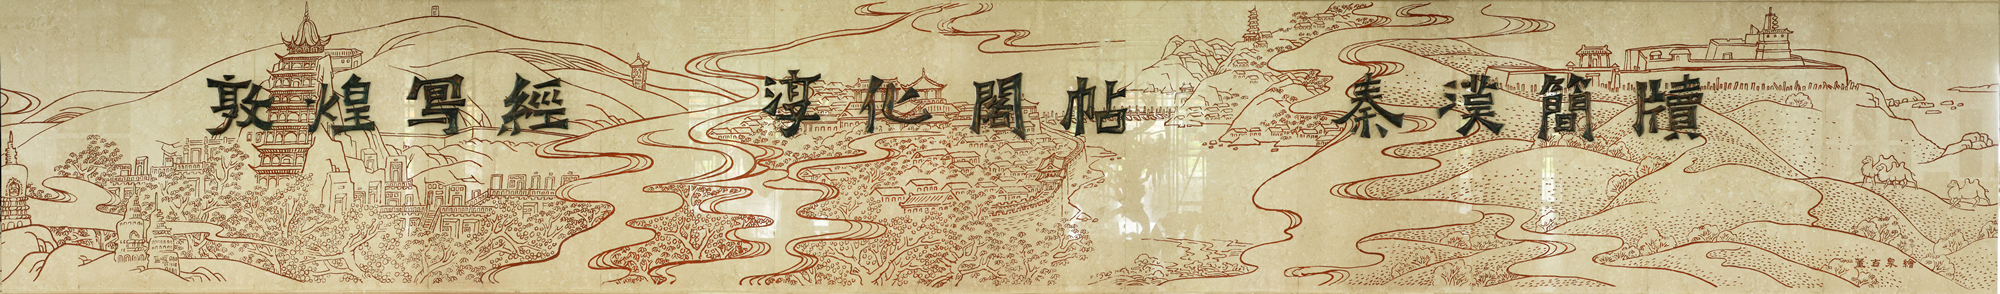 敦煌写經
淳化閣帖
秦漢簡牘
董吉泉繪